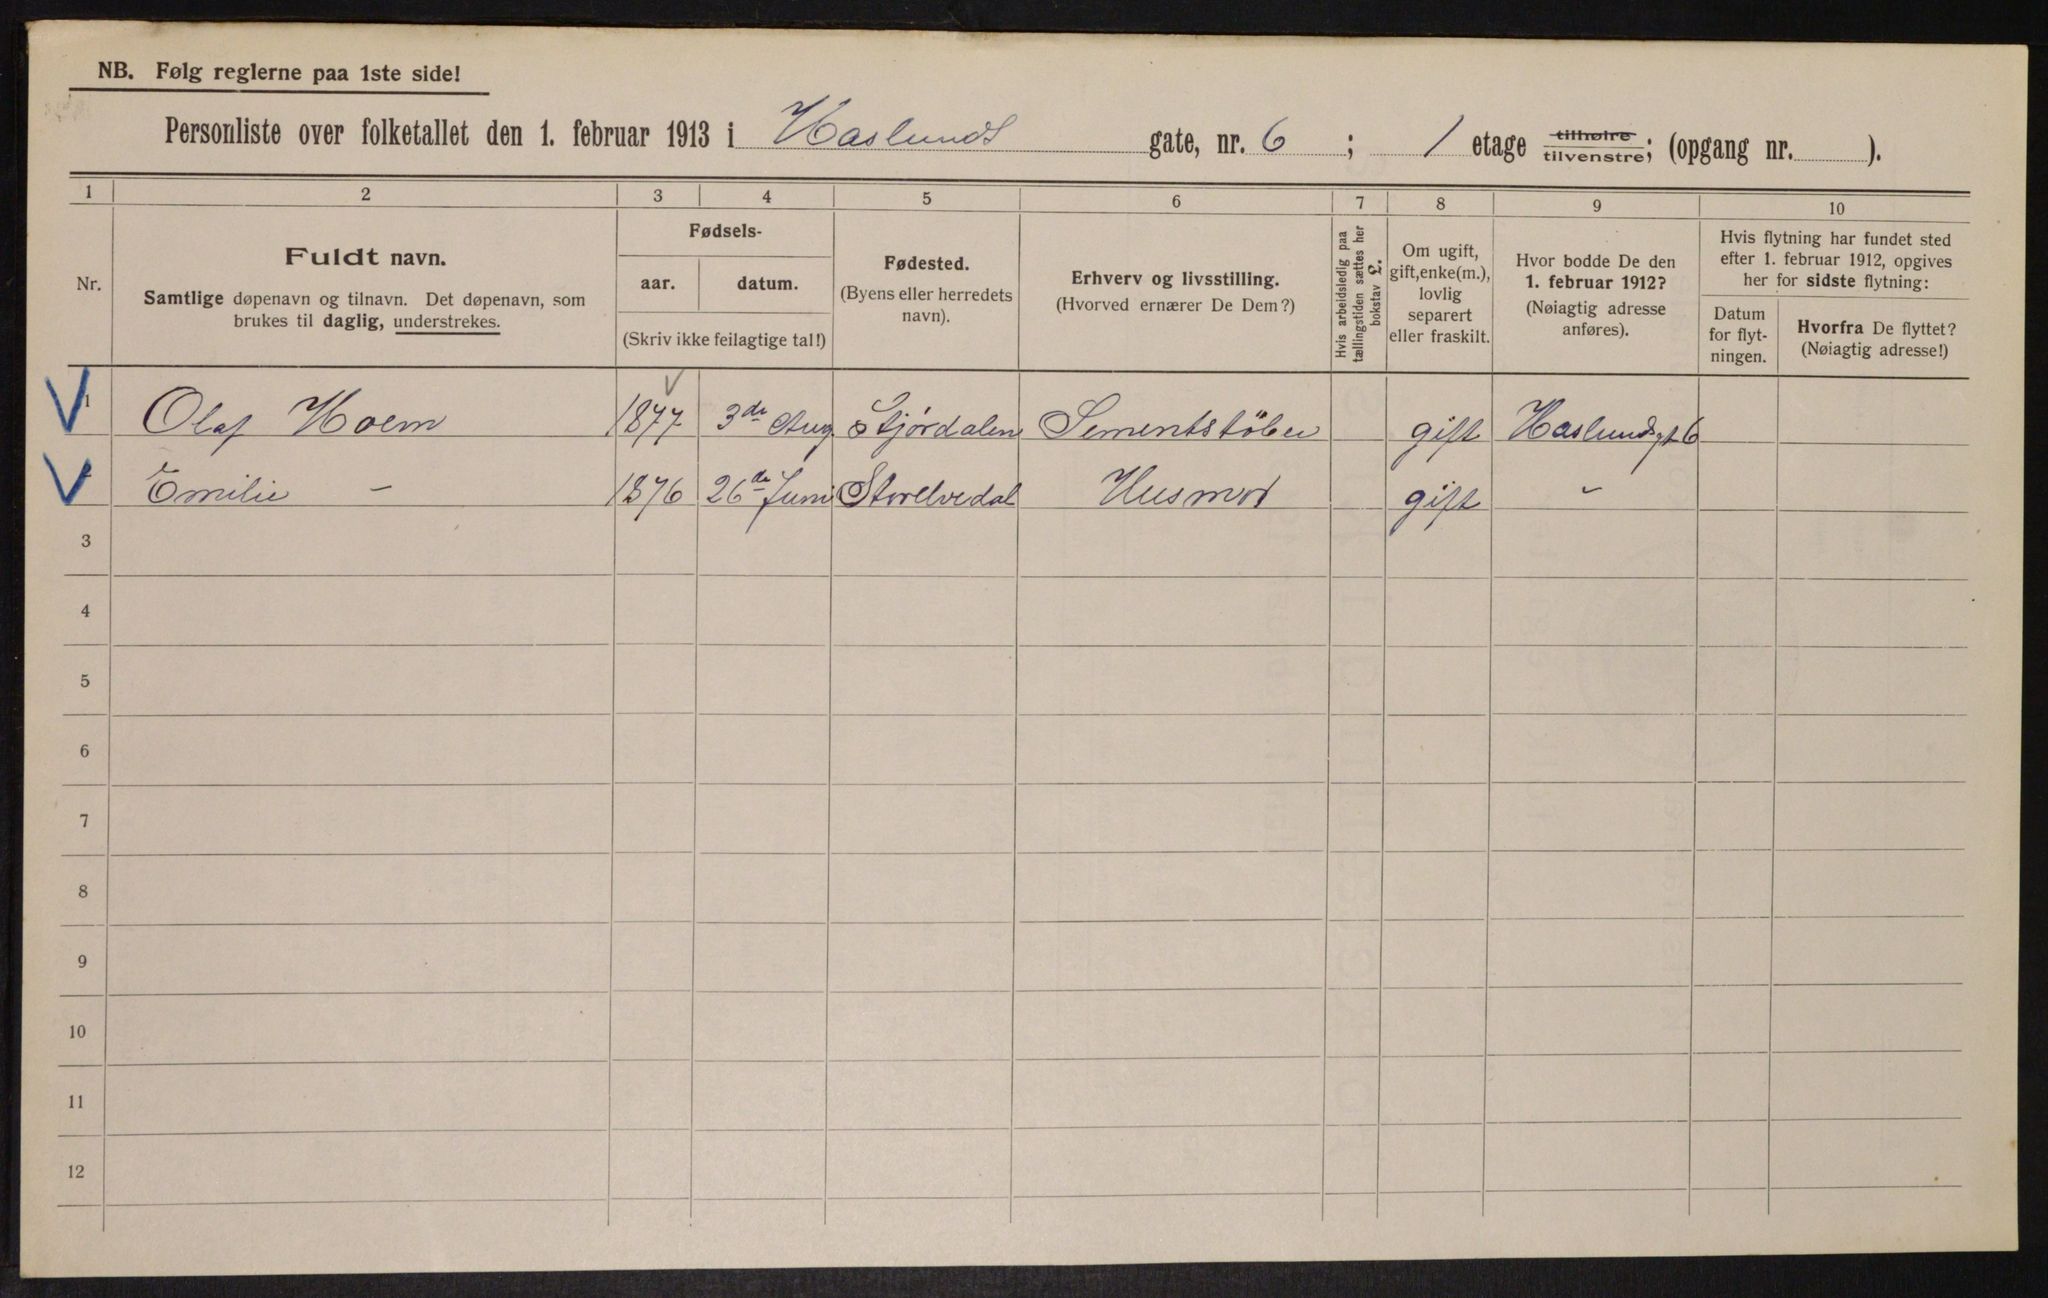 NB. Følg reglerne paa 1ste side!
Personliste over folketallet den 1. februar 1913 i Haslunds gate, nr. 6 ; 1 etage tilhøire tilvenstre; (opgang nr. ).
1 2 3 4 5 6 7 8 9 10
Nr.
Fuldt navn.
Samtlige døpenavn og tilnavn. Det døpenavn, som
brukes til daglig, understrekes.
Fødsels-
aar. datum.
(Skriv ikke feilagtige tal!)
Fødested.
(Byens eller herredets
navn).
Erhverv og livsstilling.
(Hvorved ernærer De Dem?)
Hvis arbeidsledig paa
tællingstiden sættes her
bokstav L.
Om ugift,
gift, enke(m.),
lovlig
separert
eller fraskilt.
Hvor bodde De den
1. februar 1912?
(Nøiagtig adresse
anføres).
Hvis flytning har fundet sted
efter 1. februar 1912, opgives
her for sidste flytning:
Datum
for flyt-
ningen.
Hvorfra De flyttet?
(Nøiagtig adresse!)
1 Olaf Hoem 1877 3de Aug Stjørdalen Sementstöber gift Haslundsgt 6
Emilie - 1876 26de Juni Storelvedal Husmor gift -
3
4
5
6
7
8
9
10
11
12